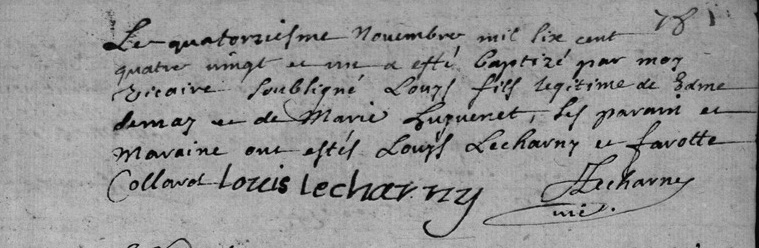 781
Le quatorziesme Novembre mil six cent
quatre vingt et un a esté baptizé par moy
vicaire soubsigné Louys fils legitime de Edme
demay et de Marie huguenet, ses parain et
maraine ont estés Louys Lecharny et farotte
Collarot louis lecharny Lecharny
vic.